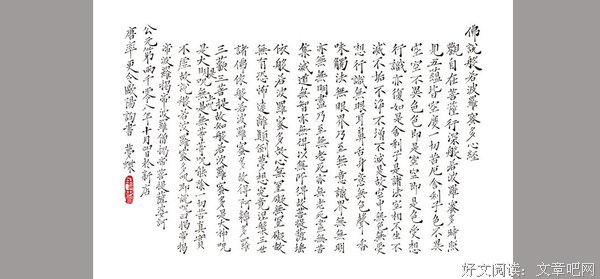 佛說般若波羅蜜多心經
觀自在菩薩行深般若波羅蜜多時照
見五蘊皆空度一切苦厄舍利子色不異
空空不異色色即是空空即是色受想
行識亦復如是舍利子是諸法空相不生不
滅不垢不淨不增不減是故空中無色無受
想行識無眼耳鼻舌身意無色聲香
味觸法無眼界乃至無意識界無無明
亦無無明盡乃至無老死亦無老死盡無苦
集滅道無智亦無得以無所得故菩提薩埵
依般若波羅蜜多故心無罣礙無罣礙故
無有恐怖遠離顛倒夢想究竟涅槃三世
諸佛依般若波羅蜜多故得阿耨多羅
三藐三菩提故知般若波羅蜜多是大神咒
是大明咒是無上咒是無等等咒能除一切苦真實
不虛故說般若波羅蜜多咒即說咒曰揭帝揭
帝波羅揭帝波羅僧揭帝菩提薩婆訶
公元第兩千零八年十月四日於新店
唐率更令歐陽詢書 夢
好文阅读：文章吧网